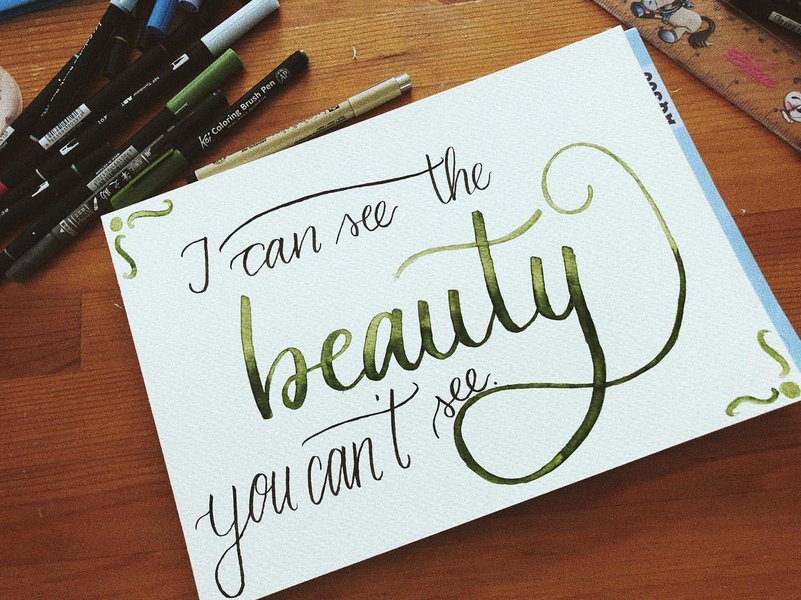 I can see the
beauty
you can't see.
Coloring Brush Pen
AP